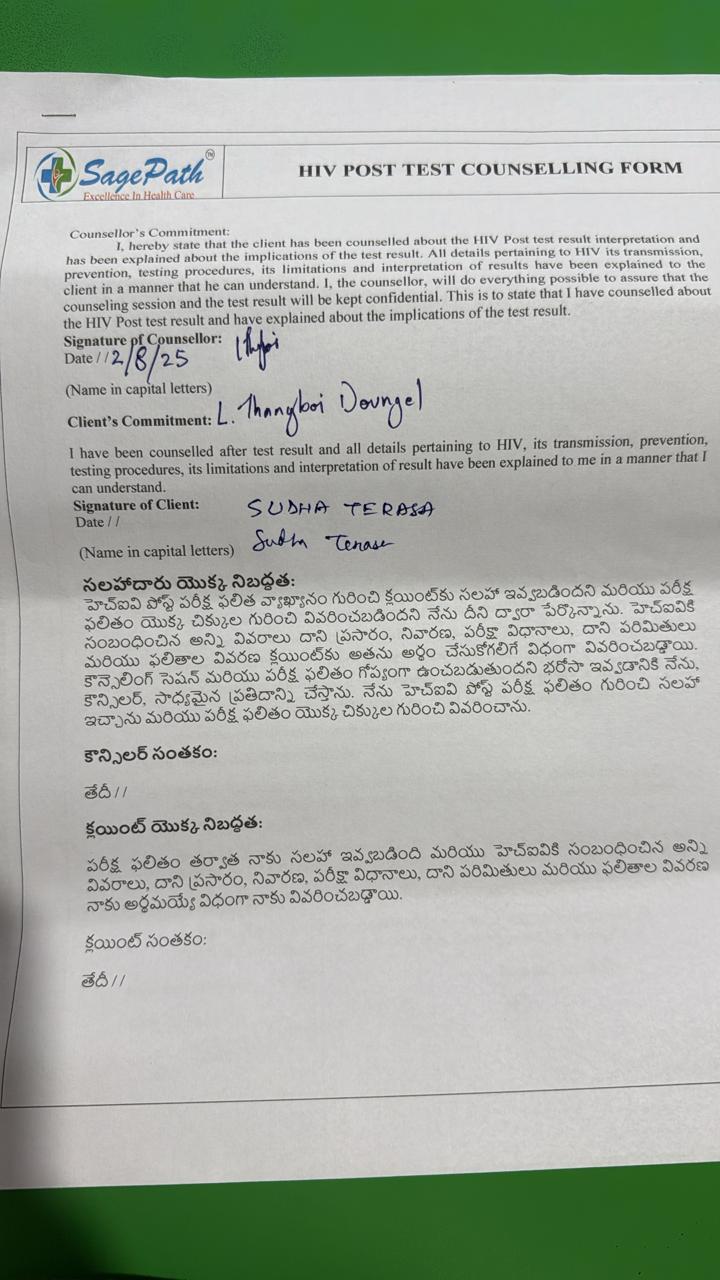 SagePath™
Excellence In Health Care
HIV POST TEST COUNSELLING FORM
Counsellor's Commitment:
I, hereby state that the client has been counselled about the HIV Post test result interpretation and
has been explained about the implications of the test result. All details pertaining to HIV its transmission,
prevention, testing procedures, its limitations and interpretation of results have been explained to the
client in a manner that he can understand. I, the counsellor, will do everything possible to assure that the
counseling session and the test result will be kept confidential. This is to state that I have counselled about
the HIV Post test result and have explained about the implications of the test result.
Signature of Counsellor:
Date / / 2/8/25
(Name in capital letters)
Client's Commitment: L. Thangboi Doungel
I have been counselled after test result and all details pertaining to HIV, its transmission, prevention,
testing procedures, its limitations and interpretation of result have been explained to me in a manner that I
can understand.
Signature of Client: SUDHA TERASA
Date / /
(Name in capital letters) Sudha Terasa
సలహాదారు యొక్క నిబద్ధత:
హెచ్ఐవి పోస్ట్ పరీక్ష ఫలిత వ్యాఖ్యానం గురించి క్లయింట్‌కు సలహా ఇవ్వబడిందని మరియు పరీక్ష
ఫలితం యొక్క చిక్కుల గురించి వివరించబడిందని నేను దీని ద్వారా పేర్కొన్నాను. హెచ్ఐవికి
సంబంధించిన అన్ని వివరాలు దాని ప్రసారం, నివారణ, పరీక్షా విధానాలు, దాని పరిమితులు
మరియు ఫలితాల వివరణ క్లయింట్‌కు అతను అర్థం చేసుకోగలిగే విధంగా వివరించబడ్డాయి.
కౌన్సెలింగ్ సెషన్ మరియు పరీక్ష ఫలితం గోప్యంగా ఉంచబడుతుందని భరోసా ఇవ్వడానికి నేను,
కౌన్సిలర్, సాధ్యమైన ప్రతిదాన్ని చేస్తాను. నేను హెచ్ఐవి పోస్ట్ పరీక్ష ఫలితం గురించి సలహా
ఇచ్చాను మరియు పరీక్ష ఫలితం యొక్క చిక్కుల గురించి వివరించాను.
కౌన్సిలర్ సంతకం:
తేదీ / /
క్లయింట్ యొక్క నిబద్ధత:
పరీక్ష ఫలితం తర్వాత నాకు సలహా ఇవ్వబడింది మరియు హెచ్ఐవికి సంబంధించిన అన్ని
వివరాలు, దాని ప్రసారం, నివారణ, పరీక్షా విధానాలు, దాని పరిమితులు మరియు ఫలితాల వివరణ
నాకు అర్థమయ్యే విధంగా నాకు వివరించబడ్డాయి.
క్లయింట్ సంతకం:
తేదీ / /